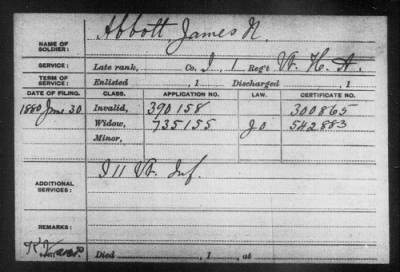 Abbott, James N.
NAME OF SOLDIER:
SERVICE: Late rank, Co. I, 1 Reg't Vt. H. A.
TERM OF SERVICE: Enlisted , 1 Discharged , 1
DATE OF FILING. CLASS. APPLICATION NO. LAW. CERTIFICATE NO.
1880 June 30 Invalid, 390158 300865
Widow, 735155 542883
Minor,
ADDITIONAL SERVICES: I 11 Vt. Inf.
REMARKS:
Died , 1 , at